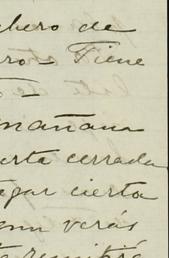 chero de
ro - Tiene
mañana
erta cerrada
egar cierta
verás